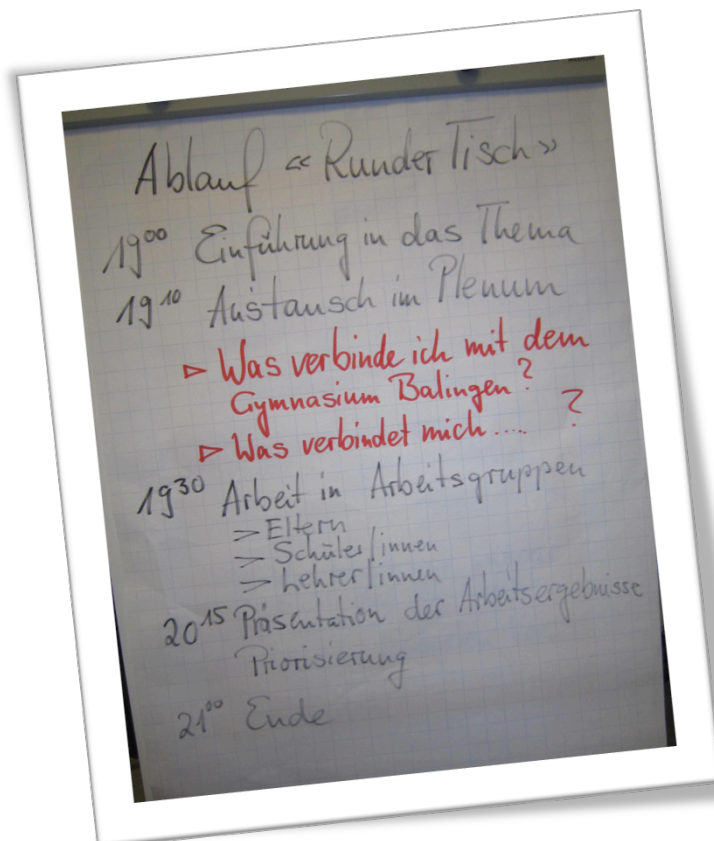 Ablauf « Runder Tisch »
19⁰⁰ Einführung in das Thema
19¹⁰ Austausch im Plenum
▷ Was verbinde ich mit dem
Gymnasium Balingen?
▷ Was verbindet mich .... ?
19³⁰ Arbeit in Arbeitsgruppen
=> Eltern
=> Schüler/innen
=> Lehrer/innen
20¹⁵ Präsentation der Arbeitsergebnisse
Priorisierung
21⁰⁰ Ende